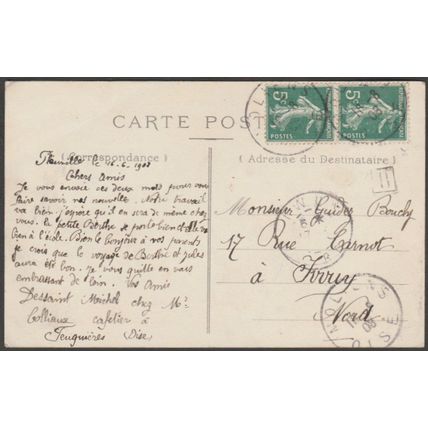 CARTE POSTALE
(Correspondance)
(Adresse du Destinataire)
le 15-6-1908
Chers Amis
Je vous envoie ces deux mots pour vous
faire savoir nos nouvelle. Notre travail
va bien j'espère qu'il en sera de même chez
vous. la petite Berthe se porte bien et va
bien à l'école. Bonl bonjour à vos parents
je crois que le voyage de Berthe et jules
aura été bon. Je vous quitte en vous
embrassant de loin. Vos Amis
Dessaint Michel chez Mr
Colliaux cafetier à
Feuquières (Oise)
Monsieur Guides Bouchy
17 Rue Carnot
à
Nord
5 POSTES
5 POSTES
OISE